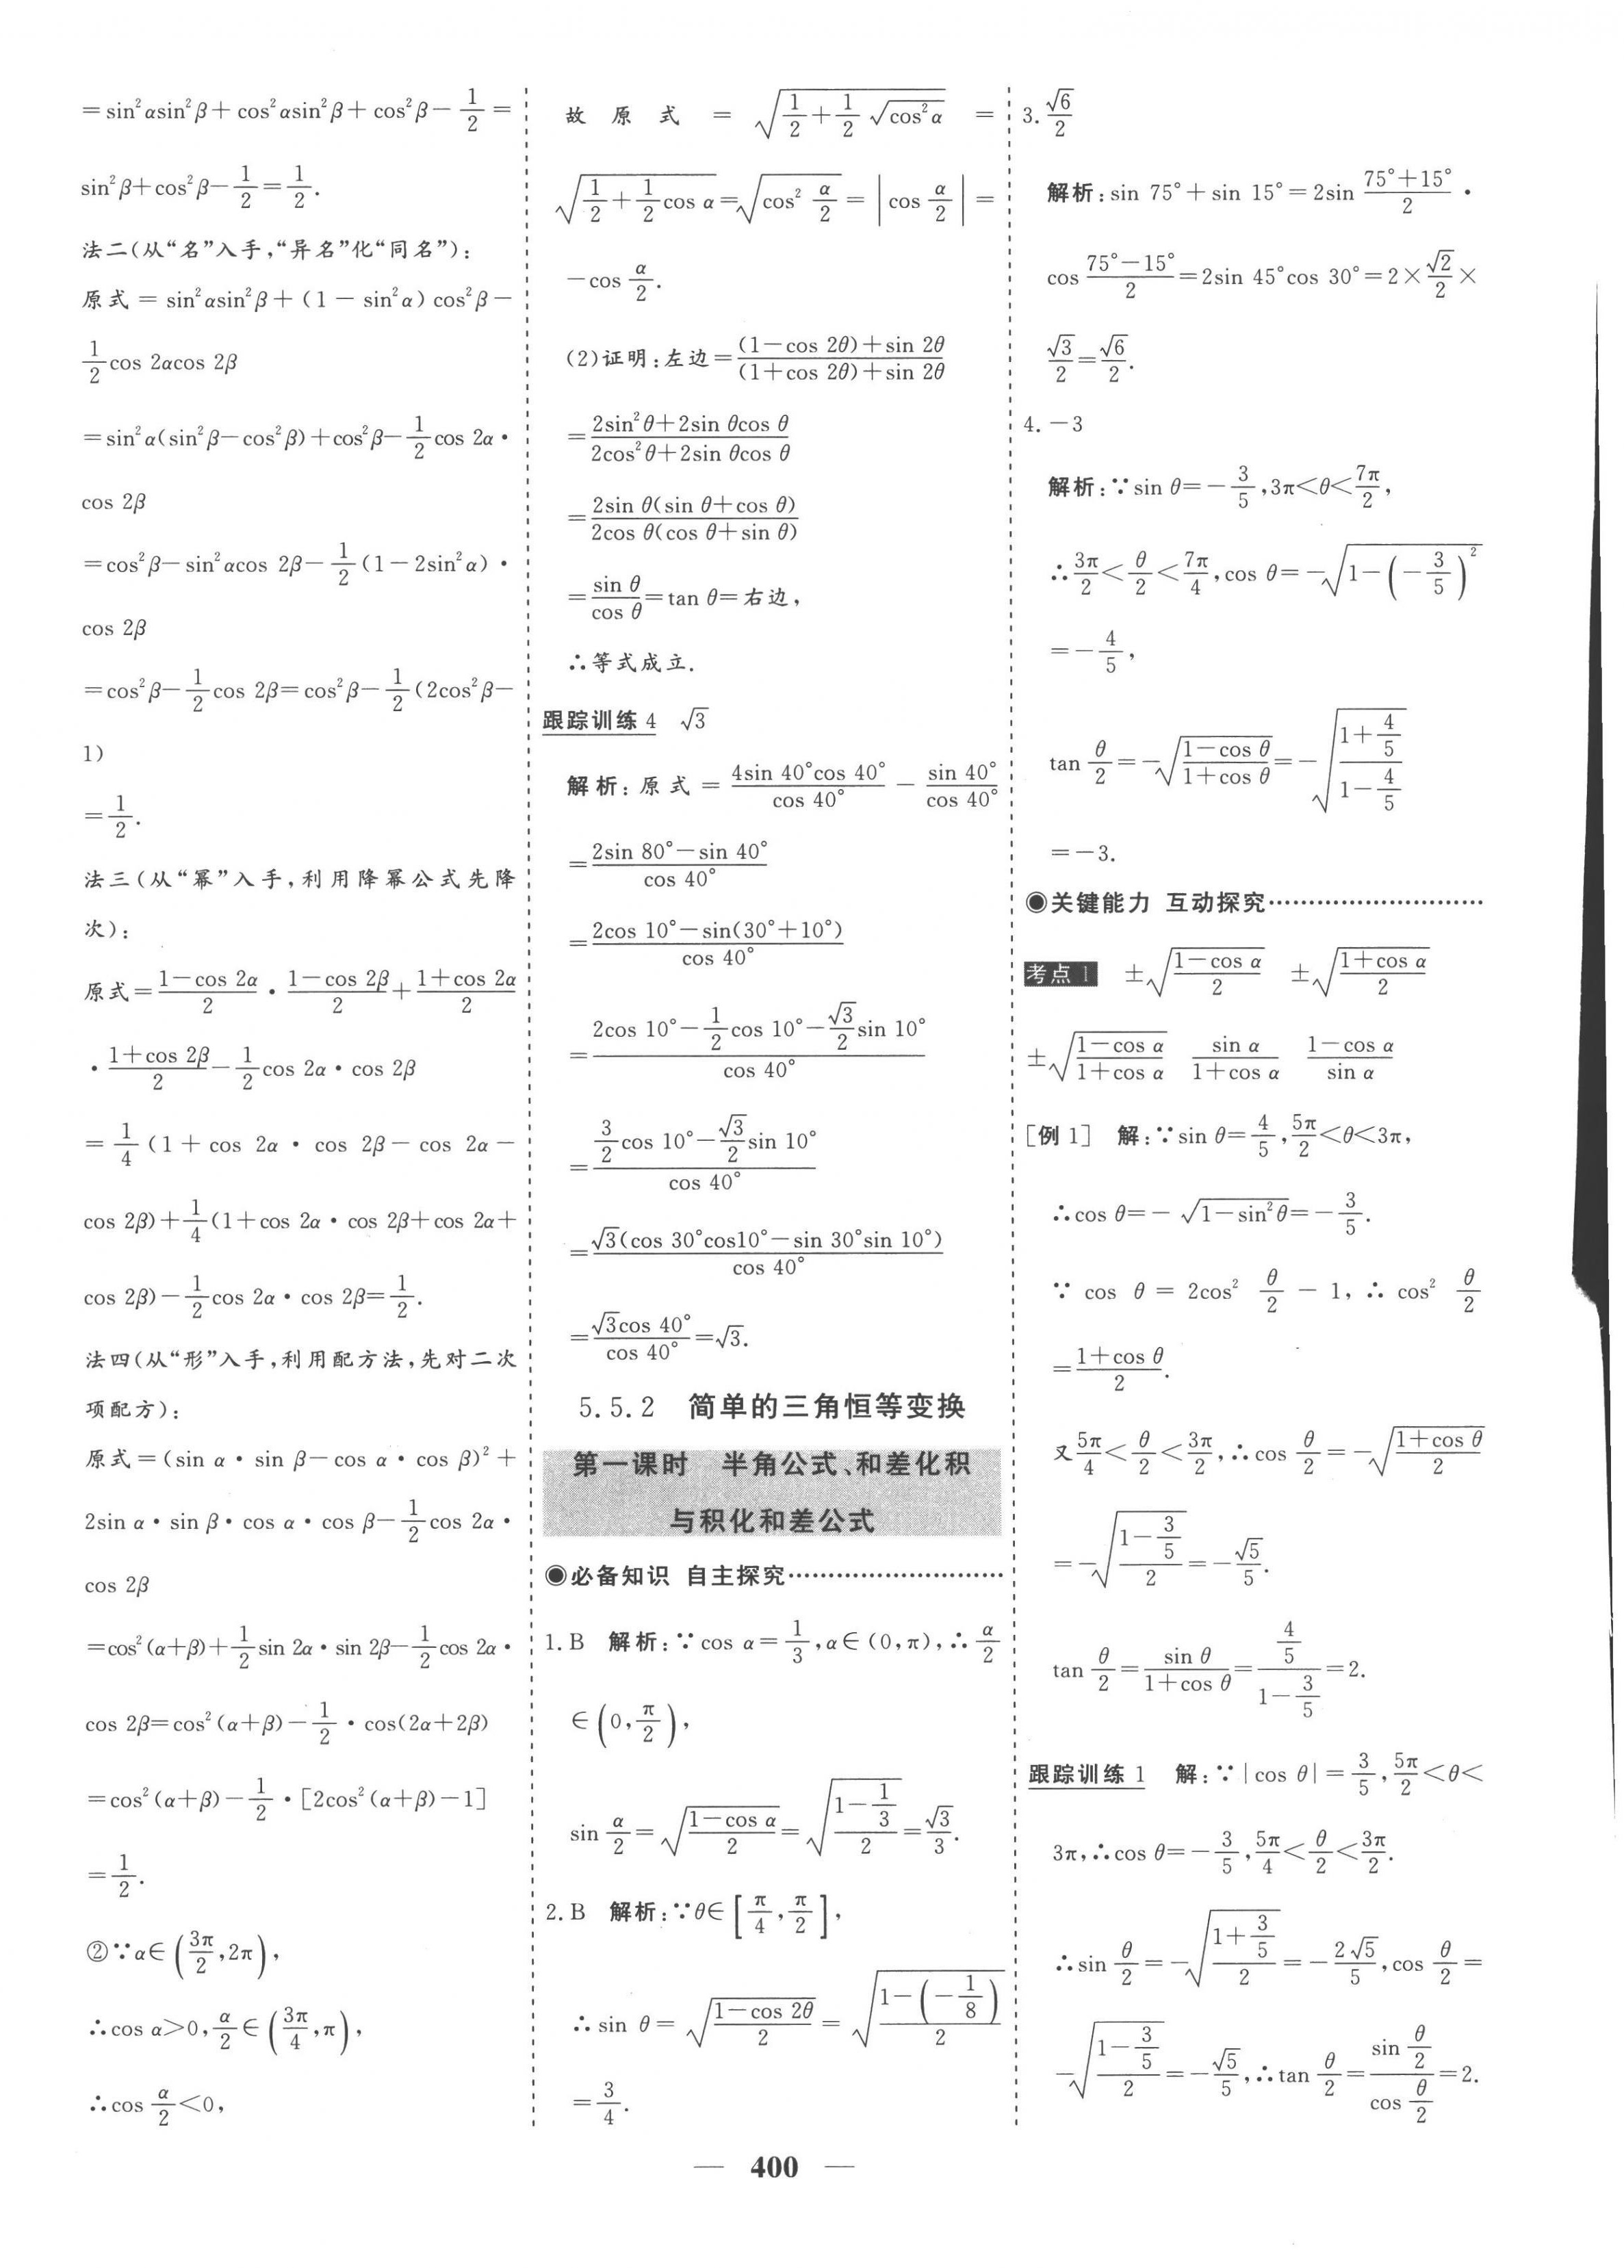 =sin²αsin²β+cos²αsin²β+cos²β-1/2=
sin²β+cos²β-1/2=1/2.
法二(从“名”入手,“异名”化“同名”):
原式=sin²αsin²β+(1-sin²α)cos²β-
1/2cos 2αcos 2β
=sin²α(sin²β-cos²β)+cos²β-1/2cos 2α·
cos 2β
=cos²β-sin²αcos 2β-1/2(1-2sin²α)·
cos 2β
=cos²β-1/2cos 2β=cos²β-1/2(2cos²β-
1)
=1/2.
法三(从“幂”入手,利用降幂公式先降
次):
原式=(1-cos 2α)/2·(1-cos 2β)/2+(1+cos 2α)/2
·(1+cos 2β)/2-1/2cos 2α·cos 2β
=1/4(1+cos 2α·cos 2β-cos 2α-
cos 2β)+1/4(1+cos 2α·cos 2β+cos 2α+
cos 2β)-1/2cos 2α·cos 2β=1/2.
法四(从“形”入手,利用配方法,先对二次
项配方):
原式=(sin α·sin β-cos α·cos β)²+
2sin α·sin β·cos α·cos β-1/2cos 2α·
cos 2β
=cos²(α+β)+1/2sin 2α·sin 2β-1/2cos 2α·
cos 2β=cos²(α+β)-1/2·cos(2α+2β)
=cos²(α+β)-1/2·[2cos²(α+β)-1]
=1/2.
②∵α∈(3π/2,2π),
∴cos α>0,α/2∈(3π/4,π),
∴cos α/2<0,
故原式=√(1/2+1/2√(cos²α))=
√(1/2+1/2cos α)=√(cos² α/2)=|cos α/2|=
-cos α/2.
(2)证明:左边=((1-cos 2θ)+sin 2θ)/((1+cos 2θ)+sin 2θ)
=(2sin²θ+2sin θcos θ)/(2cos²θ+2sin θcos θ)
=(2sin θ(sin θ+cos θ))/(2cos θ(cos θ+sin θ))
=sin θ/cos θ=tan θ=右边,
∴等式成立.
跟踪训练4 √3
解析:原式=(4sin 40°cos 40°)/(cos 40°)-(sin 40°)/(cos 40°)
=(2sin 80°-sin 40°)/(cos 40°)
=(2cos 10°-sin(30°+10°))/(cos 40°)
=(2cos 10°-1/2cos 10°-√3/2sin 10°)/(cos 40°)
=(3/2cos 10°-√3/2sin 10°)/(cos 40°)
=(√3(cos 30°cos10°-sin 30°sin 10°))/(cos 40°)
=(√3cos 40°)/(cos 40°)=√3.
5.5.2 简单的三角恒等变换
第一课时 半角公式、和差化积
与积化和差公式
◉必备知识 自主探究…………………………
1.B 解析:∵cos α=1/3,α∈(0,π),∴α/2
∈(0,π/2),
sin α/2=√((1-cos α)/2)=√((1-1/3)/2)=√3/3.
2.B 解析:∵θ∈[π/4,π/2],
∴sin θ=√((1-cos 2θ)/2)=√((1-(-1/8))/2)
=3/4.
3.√6/2
解析:sin 75°+sin 15°=2sin (75°+15°)/2·
cos (75°-15°)/2=2sin 45°cos 30°=2×√2/2×
√3/2=√6/2.
4.-3
解析:∵sin θ=-3/5,3π<θ<7π/2,
∴3π/2<θ/2<7π/4,cos θ=-√(1-(-3/5)²)
=-4/5,
tan θ/2=-√((1-cos θ)/(1+cos θ))=-√((1+4/5)/(1-4/5))
=-3.
◉关键能力 互动探究…………………………
考点1 ±√((1-cos α)/2) ±√((1+cos α)/2)
±√((1-cos α)/(1+cos α)) sin α/(1+cos α) (1-cos α)/sin α
[例1] 解:∵sin θ=4/5,5π/2<θ<3π,
∴cos θ=-√(1-sin²θ)=-3/5.
∵cos θ=2cos² θ/2-1,∴cos² θ/2
=(1+cos θ)/2.
又5π/4<θ/2<3π/2,∴cos θ/2=-√((1+cos θ)/2)
=-√((1-3/5)/2)=-√5/5.
tan θ/2=sin θ/(1+cos θ)=(4/5)/(1-3/5)=2.
跟踪训练1 解:∵|cos θ|=3/5,5π/2<θ<
3π,∴cos θ=-3/5,5π/4<θ/2<3π/2.
∴sin θ/2=-√((1+3/5)/2)=-2√5/5,cos θ/2=
-√((1-3/5)/2)=-√5/5,∴tan θ/2=(sin θ/2)/(cos θ/2)=2.
— 400 —